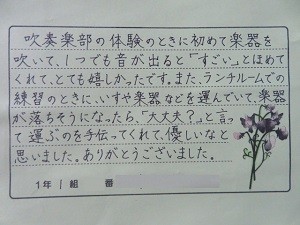 吹奏楽部の体験のときに初めて楽器を
吹いて、1つでも音が出ると「すごい」とほめて
くれて、とても嬉しかったです。また、ランチルームでの
練習のときに、いすや楽器などを運んでいて、楽器
が落ちそうになったら、「大丈夫?」と言っ
て運ぶのを手伝ってくれて、優しいなと
思いました。ありがとうございました。
1年1組 番